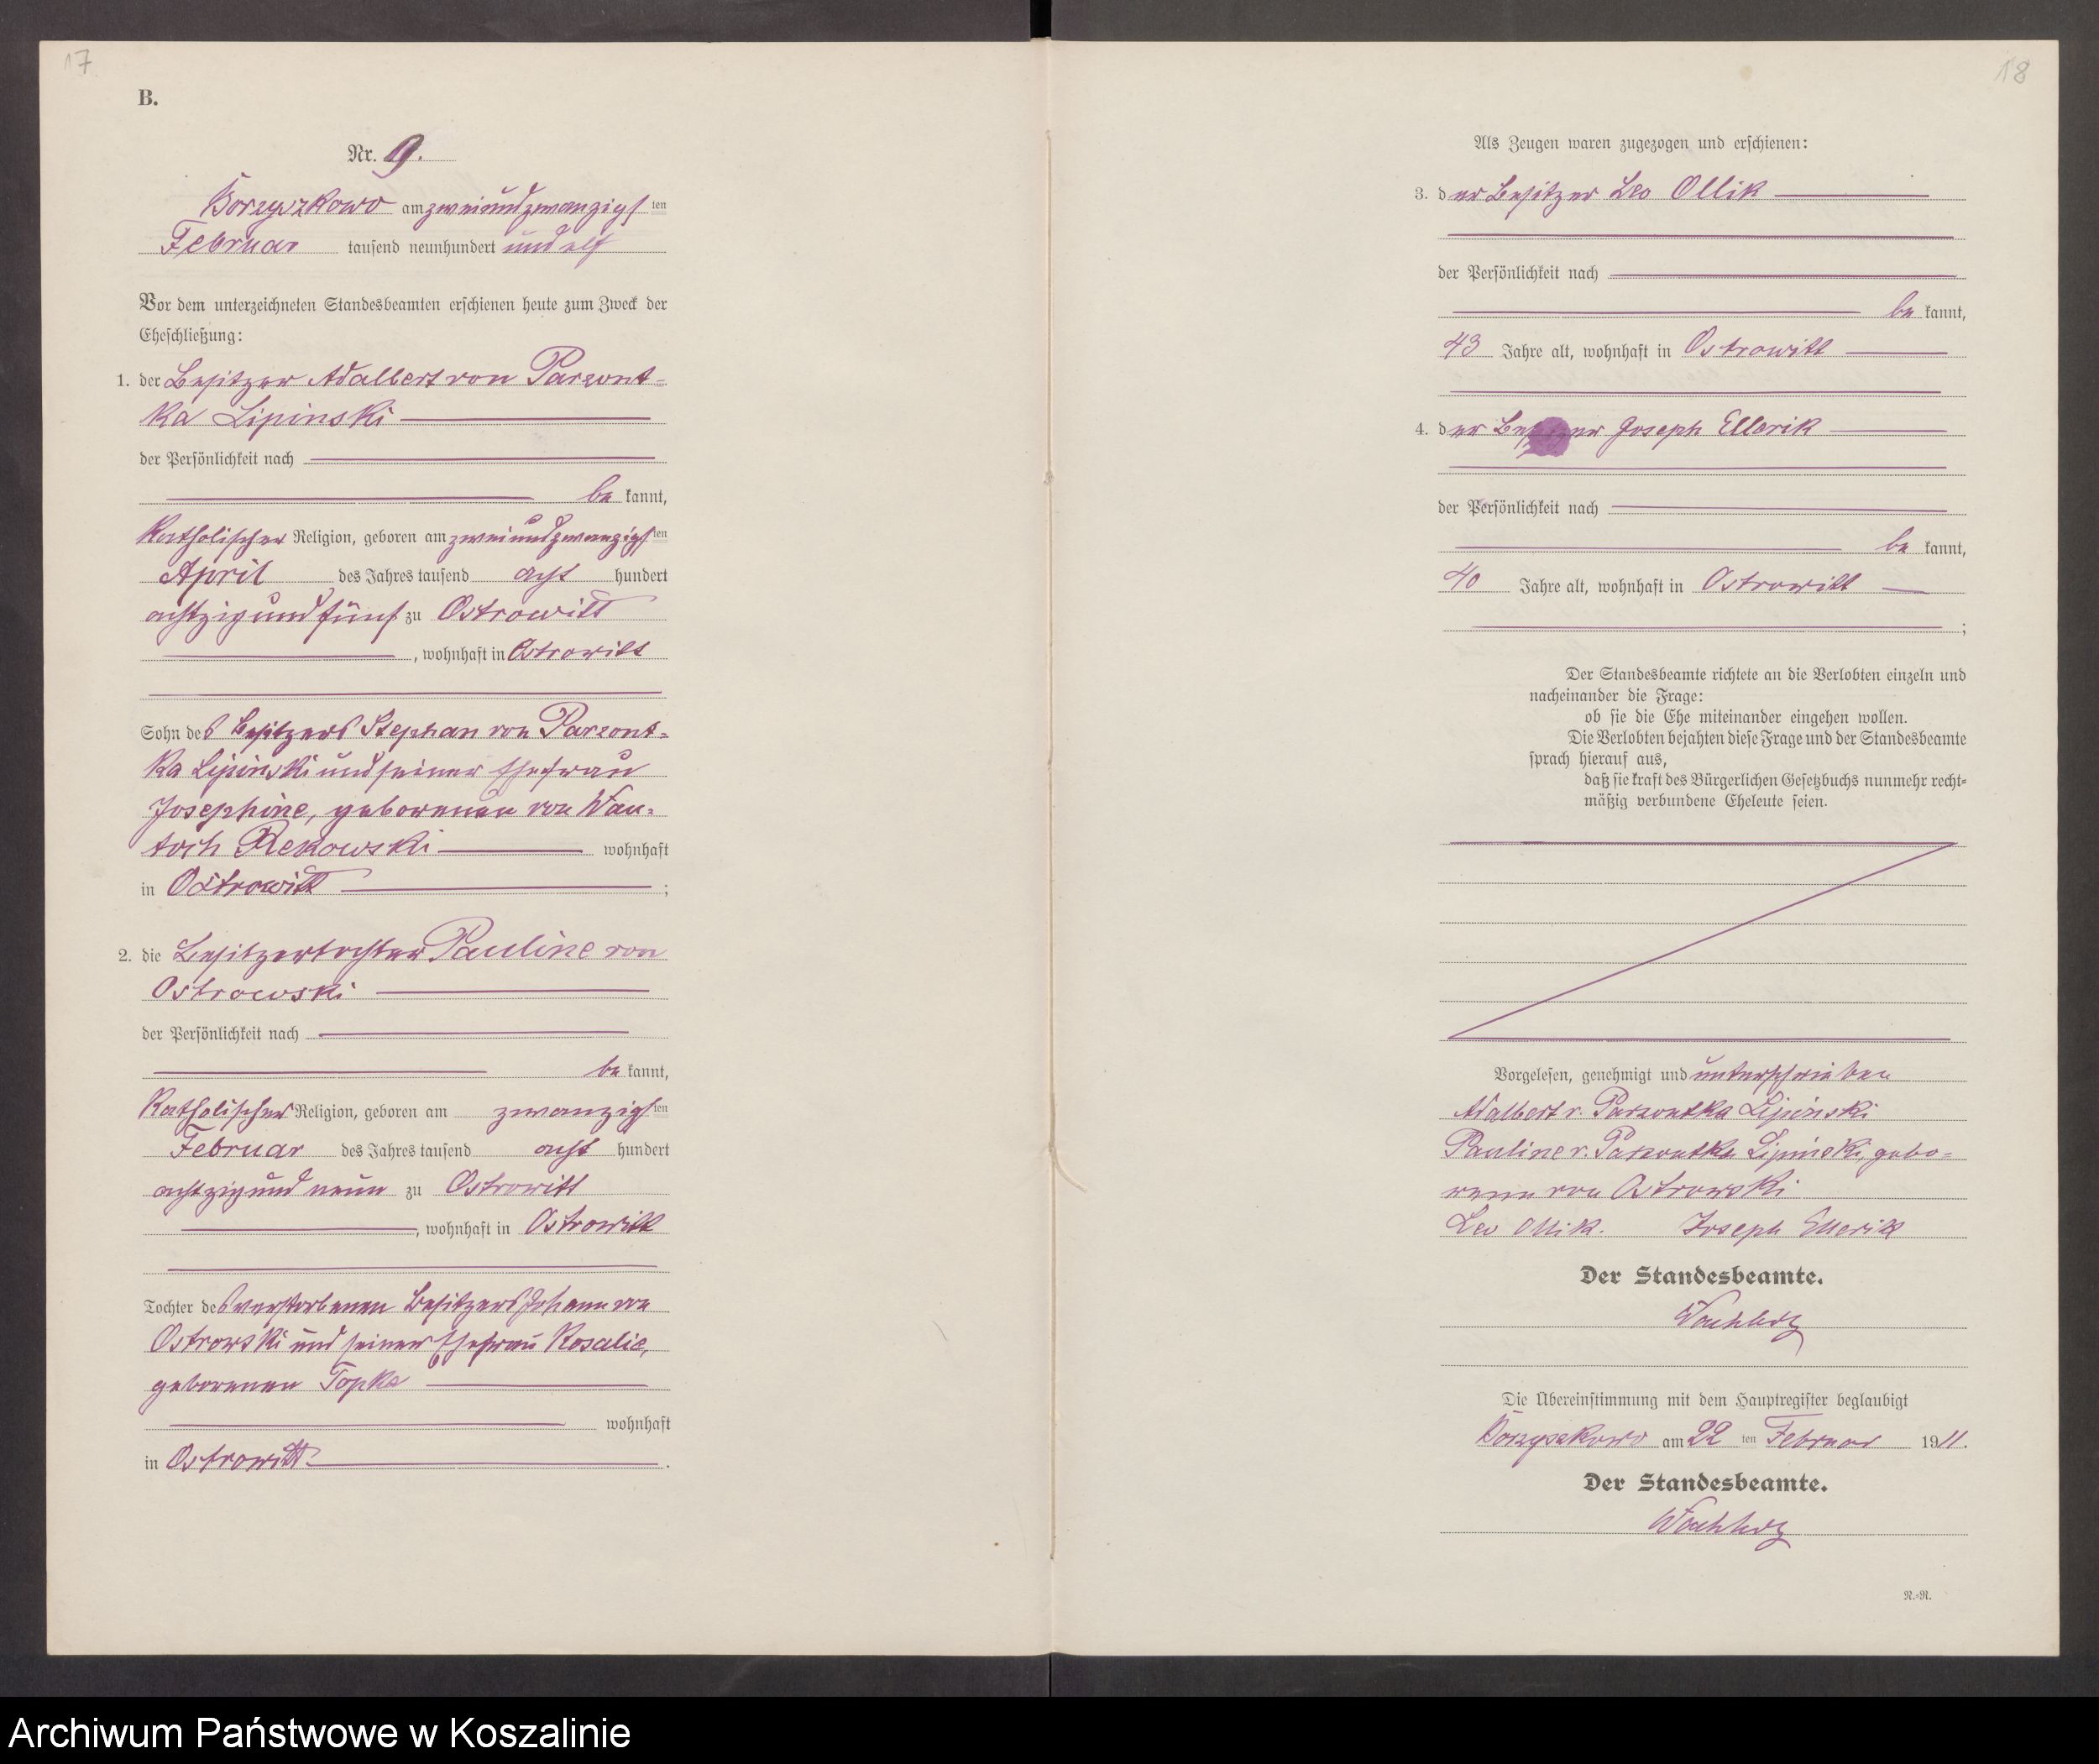 17
B.
Nr. 9.
Borzyszkowo am zweiundzwanzigsten
Februar tausend neunhundert und elf
Vor dem unterzeichneten Standesbeamten erschienen heute zum Zweck der
Eheschließung:
1. der Besitzer Adalbert von Parzont=
ka Lipinski
der Persönlichkeit nach
be kannt,
katholischer Religion, geboren am zweiundzwanzigsten
April des Jahres tausend acht hundert
achtzig und fünf zu Ostrowitt
, wohnhaft in Ostrowitt
Sohn des Besitzers Stephan von Parzont=
ka Lipinski und seiner Ehefrau
Josephine, geborenen von Wan=
toch Rekowski wohnhaft
in Ostrowitt ;
2. die Besitzertochter Pauline von
Ostrowski
der Persönlichkeit nach
be kannt,
katholischer Religion, geboren am zwanzigsten
Februar des Jahres tausend acht hundert
achtzig und neun zu Ostrowitt
, wohnhaft in Ostrowitt
Tochter des verstorbenen Besitzers Johann von
Ostrowski und seiner Ehefrau Rosalie,
geborenen Topka
wohnhaft
in Ostrowitt .
18
Als Zeugen waren zugezogen und erschienen:
3. der Besitzer Leo Ollik
der Persönlichkeit nach
be kannt,
43 Jahre alt, wohnhaft in Ostrowitt
4. der Besitzer Joseph Ellerik
der Persönlichkeit nach
be kannt,
40 Jahre alt, wohnhaft in Ostrowitt
;
Der Standesbeamte richtete an die Verlobten einzeln und
nacheinander die Frage:
ob sie die Ehe miteinander eingehen wollen.
Die Verlobten bejahten diese Frage und der Standesbeamte
sprach hierauf aus,
daß sie kraft des Bürgerlichen Gesetzbuchs nunmehr recht=
mäßig verbundene Eheleute seien.
Vorgelesen, genehmigt und unterschrieben
Adalbert v. Parzontka Lipinski
Pauline v. Parzontka Lipinski, gebo=
rene von Ostrowski
Leo Ollik. Joseph Ellerik
Der Standesbeamte.
Die Übereinstimmung mit dem Hauptregister beglaubigt
Borzyszkowo am 22 ten Februar 1911.
Der Standesbeamte.
N.=N.
Archiwum Państwowe w Koszalinie